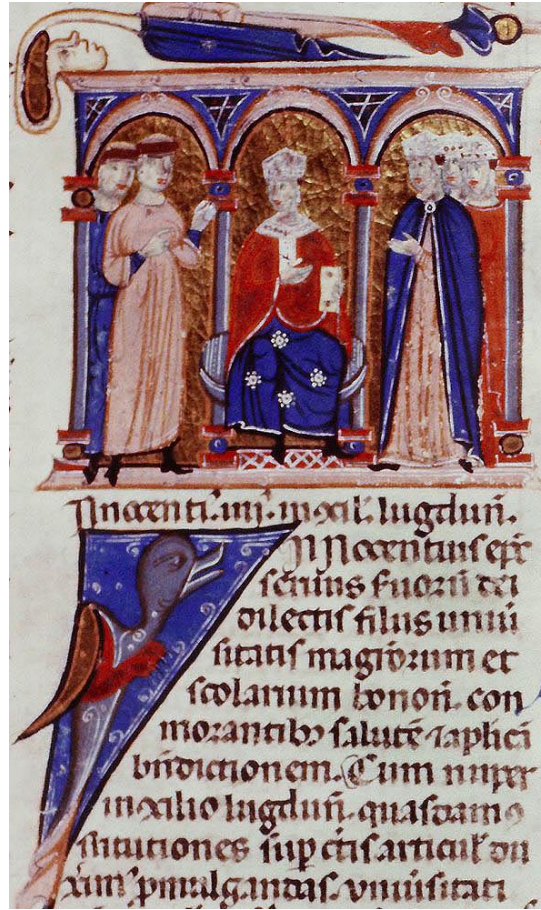 Innocenti. iiij. in ɔcil. lugdun̄.
INNocentius ep̄c
seruus suorū dei
dilectis filiis uniū
sitatis magr̄orum et
scolarium bonon̄. com
morantibꝫ salutē ⁊ apl̄icā
bn̄dictionem. Cum nuper
in ɔcilio lugdun̄. quasdam ɔ
stitutiones sup c̄tis articul' du
xim' ꝓmulgandas. uniūsitati